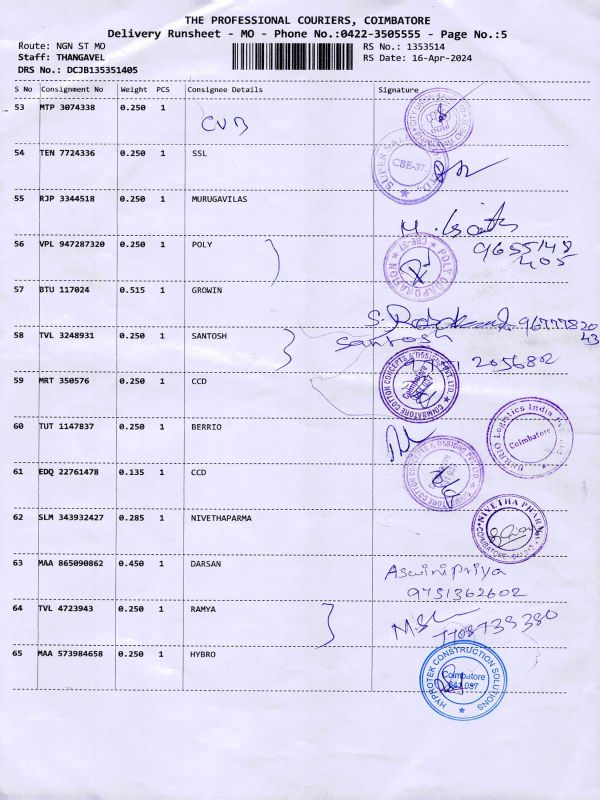 THE PROFESSIONAL COURIERS, COIMBATORE
Delivery Runsheet - MO - Phone No.:0422-3505555 - Page No.:5
Route: NGN ST MO RS No.: 1353514
Staff: THANGAVEL RS Date: 16-Apr-2024
DRS No.: DCJB135351405
S No Consignment No Weight PCS Consignee Details Signature
53 MTP 3074338 0.250 1 CVB
54 TEN 7724336 0.250 1 SSL
CBE-37.
55 RJP 3344518 0.250 1 MURUGAVILAS
56 VPL 947287320 0.250 1 POLY
CBE-37
57 BTU 117024 0.515 1 GROWIN
58 TVL 3248931 0.250 1 SANTOSH Santosh
2056802
59 MRT 350576 0.250 1 CCD
COIMBATORE COTTON CONCEPTS & DSSIGNS PVT LTD
60 TUT 1147837 0.250 1 BERRIO
Logistics India
Coimbatore
61 EDQ 22761478 0.135 1 CCD
62 SLM 343932427 0.285 1 NIVETHAPARMA
NIVETHA PHARMA
63 MAA 865090862 0.450 1 DARSAN Aswinipriya
9751362602
64 TVL 4723943 0.250 1 RAMYA
7708735380
65 MAA 573984658 0.250 1 HYBRO
HYPROTEK CONSTRUCTION SOLUTIONS
Coimbatore